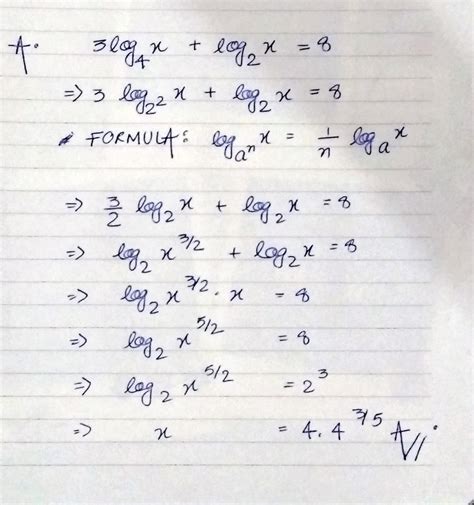 A. 3log₄x + log₂x = 8
=> 3 log₂²x + log₂x = 8
FORMULA: logₐⁿx = 1/n logₐx
=> 3/2 log₂x + log₂x = 8
=> log₂x^3/2 + log₂x = 8
=> log₂x^3/2 · x = 8
=> log₂x^5/2 = 8
=> log₂x^5/2 = 2³
=> x = 4.4^3/5 A